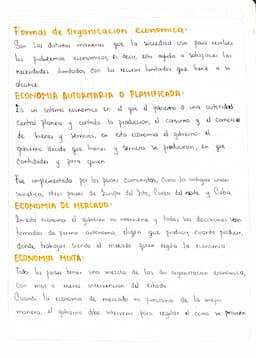 Formas de Organizacion economica:
Son las distintas maneras que la sociedad usa para resolver
los problemas economicos, es decir, esto ayuda a satisfacer las
necesidades limitadas con los recursos limitados que tiene a su
alcance.
ECONOMIA AUTORITARIA O PLANIFICADA:
Es un sistema economico en el que el gobierno o una autoridad
central planea y controla la produccion, el consumo y el comercio
de bienes y servicios, en esta economia el gobierno el
gobierno decide que bienes y servicios se produciran, en que
cantidades y para quien
Fue implementada por los paises comunistas, como la antigua union
sovietica, otros paises de Europa del Este, Corea del norte y Cuba
ECONOMIA DE MERCADO:
En esta economia el gobierno no interviene y todas las decisiones son
tomadas de forma autonoma, eligen que producir, cuanto producir,
donde trabajar, siendo el mercado quien regula la economia
ECONOMIA MIXTA:
Todos los paises tienen una mezcla de las dos organizacion economica,
con mas o menos intervencion del estado
Cuando la economia de mercado no funciona de la mejor
manera, el gobierno debe intervenir para regular el como se